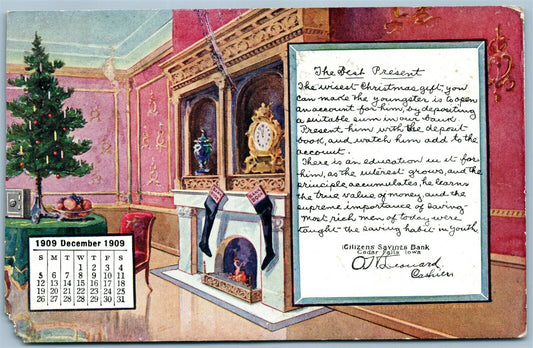 The Best Present
The wisest Christmas gift, you
can make the youngster is to open
an account for him, by depositing
a suitable sum in our bank.
Present him with the deposit
book, and watch him add to the
account.
There is an education in it for
him, as the interest grows, and the
principle accumulates, he learns
the true value of money and the
supreme importance of saving
Most rich men of today were
taught the saving habit in youth,
Citizens Savings Bank
Cedar Falls Iowa
Cashier
1909 December 1909
S M T W T F S
1 2 3 4
5 6 7 8 9 10 11
12 13 14 15 16 17 18
19 20 21 22 23 24 25
26 27 28 29 30 31